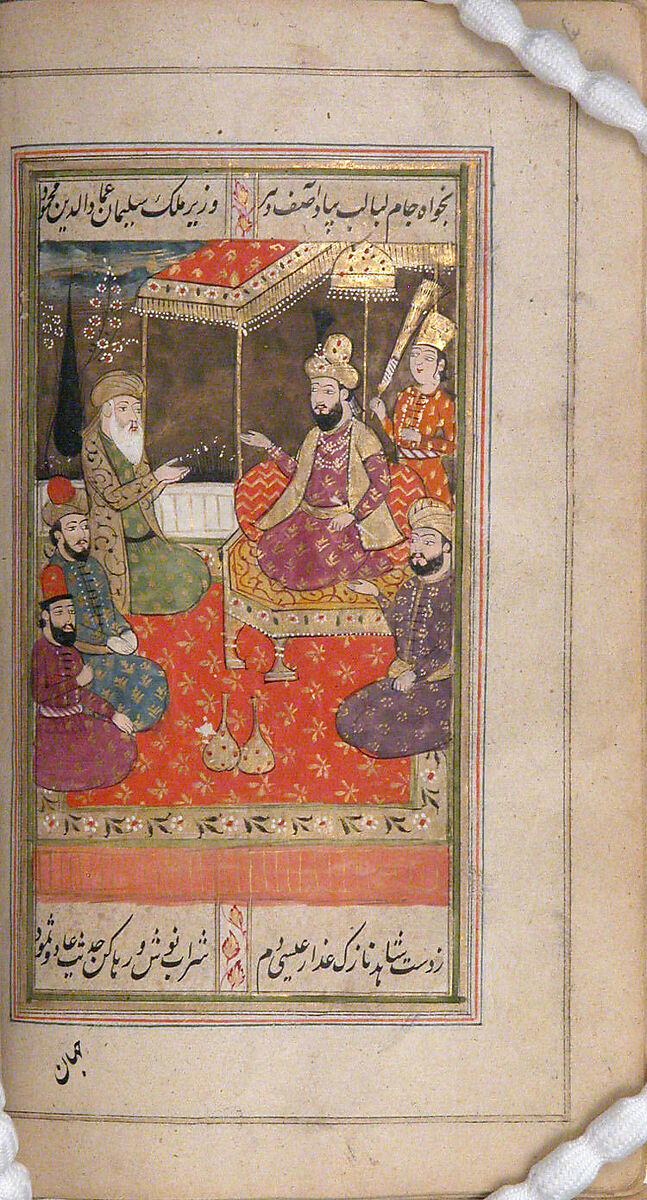 بخواه جام لبالب بیاد آصف دهر
وزیر ملک سلیمان عماد الدین محمود
زدست شاهد نازک عذار عیسی دم
شراب نوش و رها کن حدیث عاد و ثمود
جهان